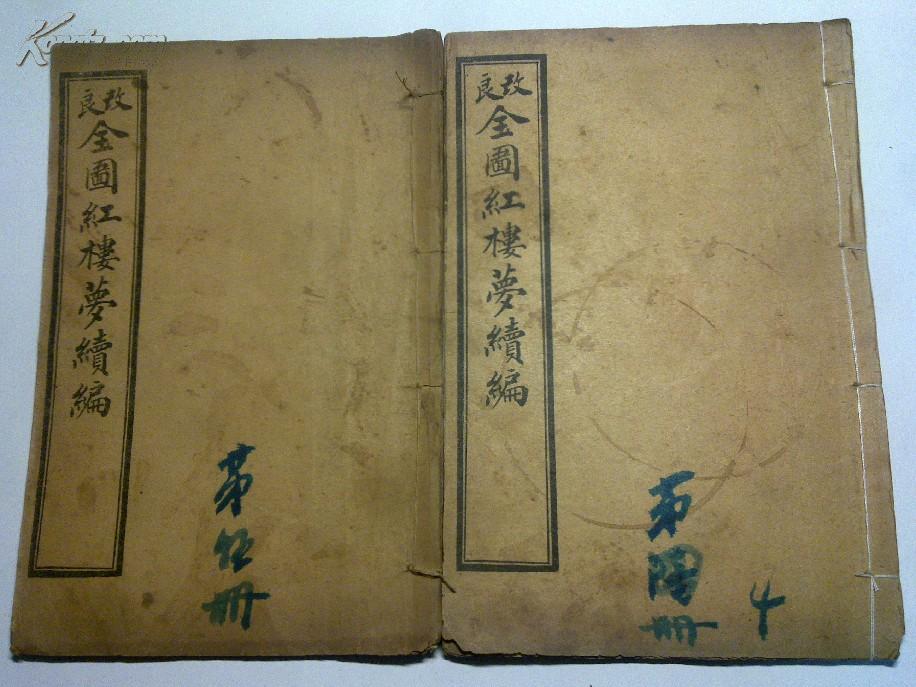 改良
全圖紅樓夢續編
第
册
4
改良
全圖紅樓夢續編
第伍册